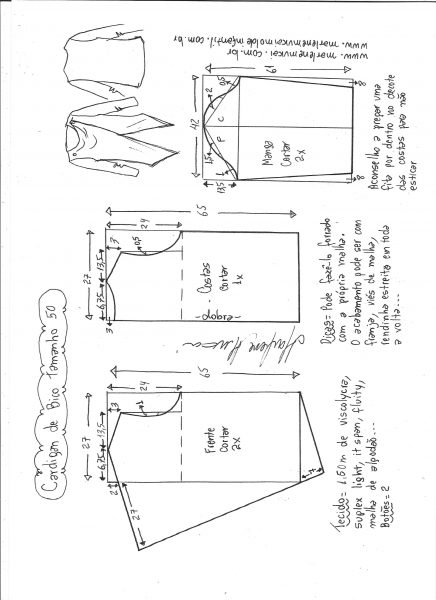 Cardigan de Bico Tamanho 50
65
24
27
6,75
13,5
3
1
2
Frente
Cortar
2x
27
Tecido= 1.60m de viscolycra,
suplex light, it span, fluity,
malha de algodão...
Botões= 2
65
24
27
6,75
13,5
3
0,5
3
Costas
Cortar
1x
-dobra-
Marlene Mukai
Dicas= Pode fazê-lo forrado
com a própria malha.
O acabamento pode ser com
franja, viés de malha,
rendinha estreita em toda
a volta...
www. marlenemukai. com.br
www. marlenemukaimoldeinfantil. com.br
61
42
13,5
1,5
1
2
0,5
F
C
Manga
Cortar
2x
8
8
Aconselho a prepar uma
fita por dentro no decote
das costas para não
esticar